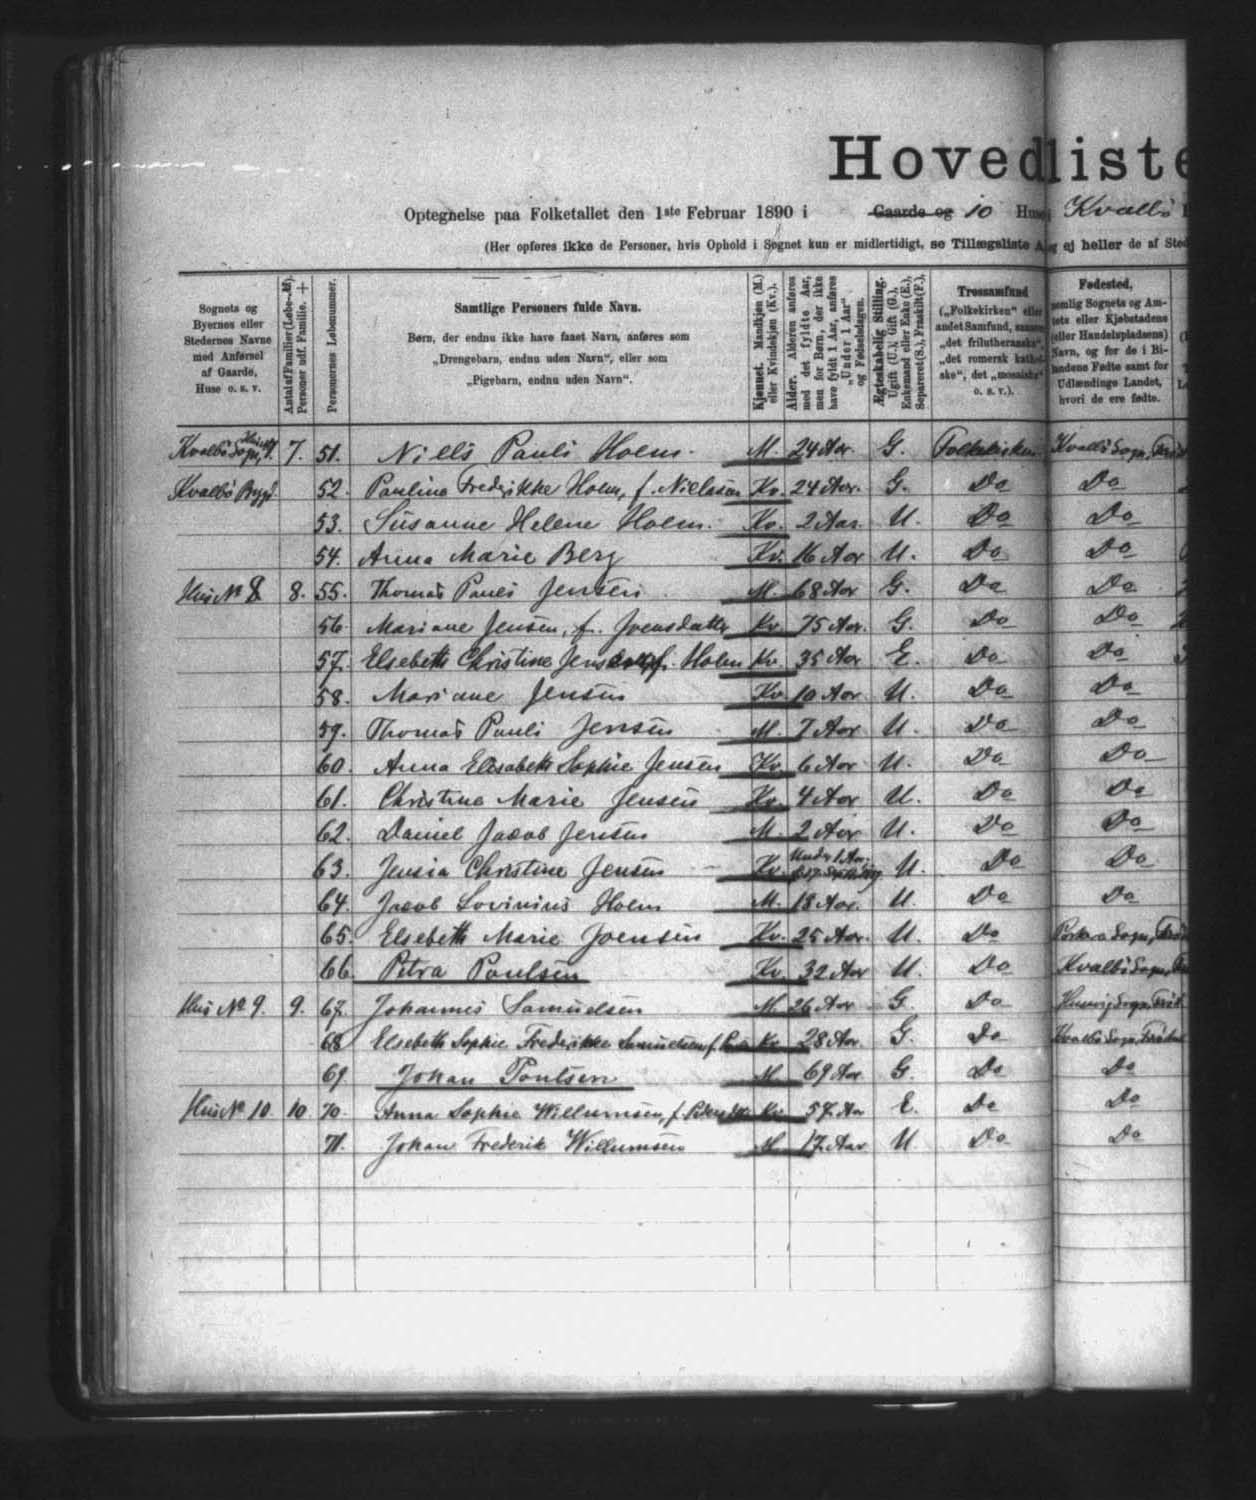 Hovedliste
Optegnelse paa Folketallet den 1ste Februar 1890 i Gaarde og 10 Huse Kvalbö
(Her opføres ikke de Personer, hvis Ophold i Sognet kun er midlertidigt, se Tillægsliste A, og ej heller de af
Sognets og Byernes eller Stedernes Navne med Anførsel af Gaarde, Huse o. s. v.
Antal af Familier (Løbe-№). Personer udf. Familie. +
Personernes Løbenummer.
Samtlige Personers fulde Navn.
Børn, der endnu ikke have faaet Navn, anføres som
„Drengebarn, endnu uden Navn", eller som
„Pigebarn, endnu uden Navn".
Kjønnet. Mandkjøn (M.) eller Kvindekjøn (Kv.).
Alder. Alderen anføres med det fyldte Aar, men for Børn, der ikke have fyldt 1 Aar, anføres „Under 1 Aar" og Fødselsdagen.
Ægteskabelig Stilling. Ugift (U.), Gift (G.), Enkemand eller Enke (E.), Separeret (S.), Fraskilt (F.).
Trossamfund („Folkekirken" eller andet Samfund, „det frilutheranske", „det romersk katholske", det „mosaiske" o. s. v.).
Fødested, nemlig Sognets og Amtets eller Kjøbstadens (eller Handelspladsens) Navn, og for de i Bilandene Fødte samt for Udlændinge Landet, hvori de ere fødte.
Kvalbö Sogn, 7. 51. Niels Pauli Holm. M. 24 Aar G. Folkekirken Kvalbö Sogn,
Kvalbö Bygd 52. Paulina Frederikke Holm, f. Nielsen Kv. 24 Aar. G. Do Do
53. Susanne Helene Holm. Kv. 2 Aar. U. Do Do
54. Anna Marie Berg Kv. 16 Aar U. Do Do
Hus № 8 8. 55. Thomas Pauli Jensen M. 68 Aar G. Do Do
56. Mariane Jensen, f. Joensdatter Kv. 75 Aar. G. Do Do
57. Elsebeth Christine Jensen, f. Holm Kv. 35 Aar E. Do Do
58. Mariane Jensen Kv. 10 Aar U. Do Do
59. Thomas Pauli Jensen M. 7 Aar U. Do Do
60. Anna Elisabeth Sophie Jensen Kv. 6 Aar U. Do Do
61. Christine Marie Jensen Kv. 4 Aar U. Do Do
62. Daniel Jacob Jensen M. 2 Aar U. Do Do
63. Jensia Christine Jensen Kv. Under 1 Aar; U. Do Do
64. Jacob Lovinius Holm M. 18 Aar. U. Do Do
65. Elsebeth Marie Joensen Kv. 25 Aar. U. Do Porkra Sogn,
66. Petra Poulsen Kv. 32 Aar U. Do Kvalbö Sogn,
Hus № 9. 9. 67. Johannes Samuelsen M. 26 Aar G. Do
68 Elsebeth Sophie Frederikke Samuelsen f. Kv. 28 Aar. G. Do Kvalbö Sogn,
69 Johan Poulsen M. 69 Aar G. Do Do
Hus № 10 10. 70. Anna Sophie Willumsen, f. Kv. 57 Aar E. Do Do
71. Johan Frederik Willumsen M. 17 Aar U. Do Do